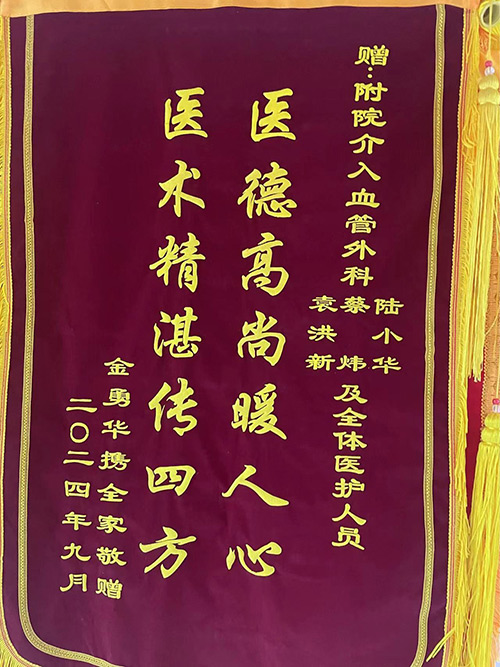 赠：附院介入血管外科
陆小华
蔡炜
袁洪新
及全体医护人员
医德高尚暖人心
医术精湛传四方
金勇华携全家敬赠
二〇二四年九月